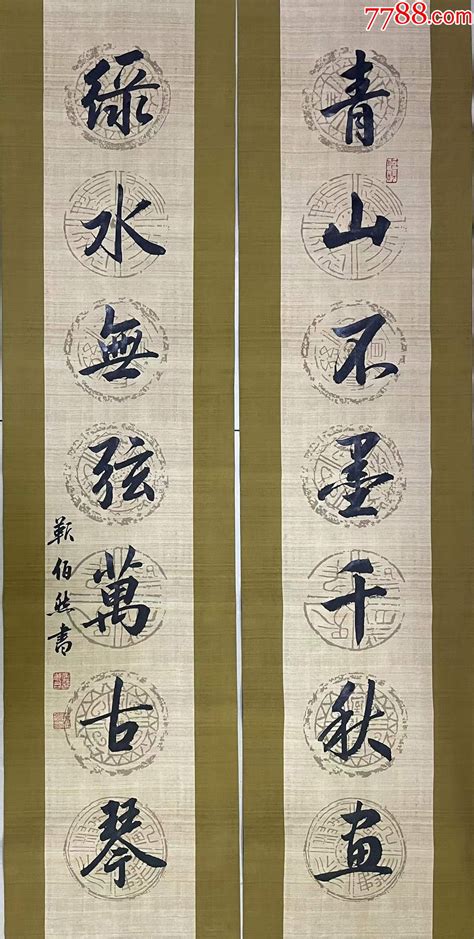 7788.com
青山不墨千秋画
绿水無弦萬古琴
靳伯然書